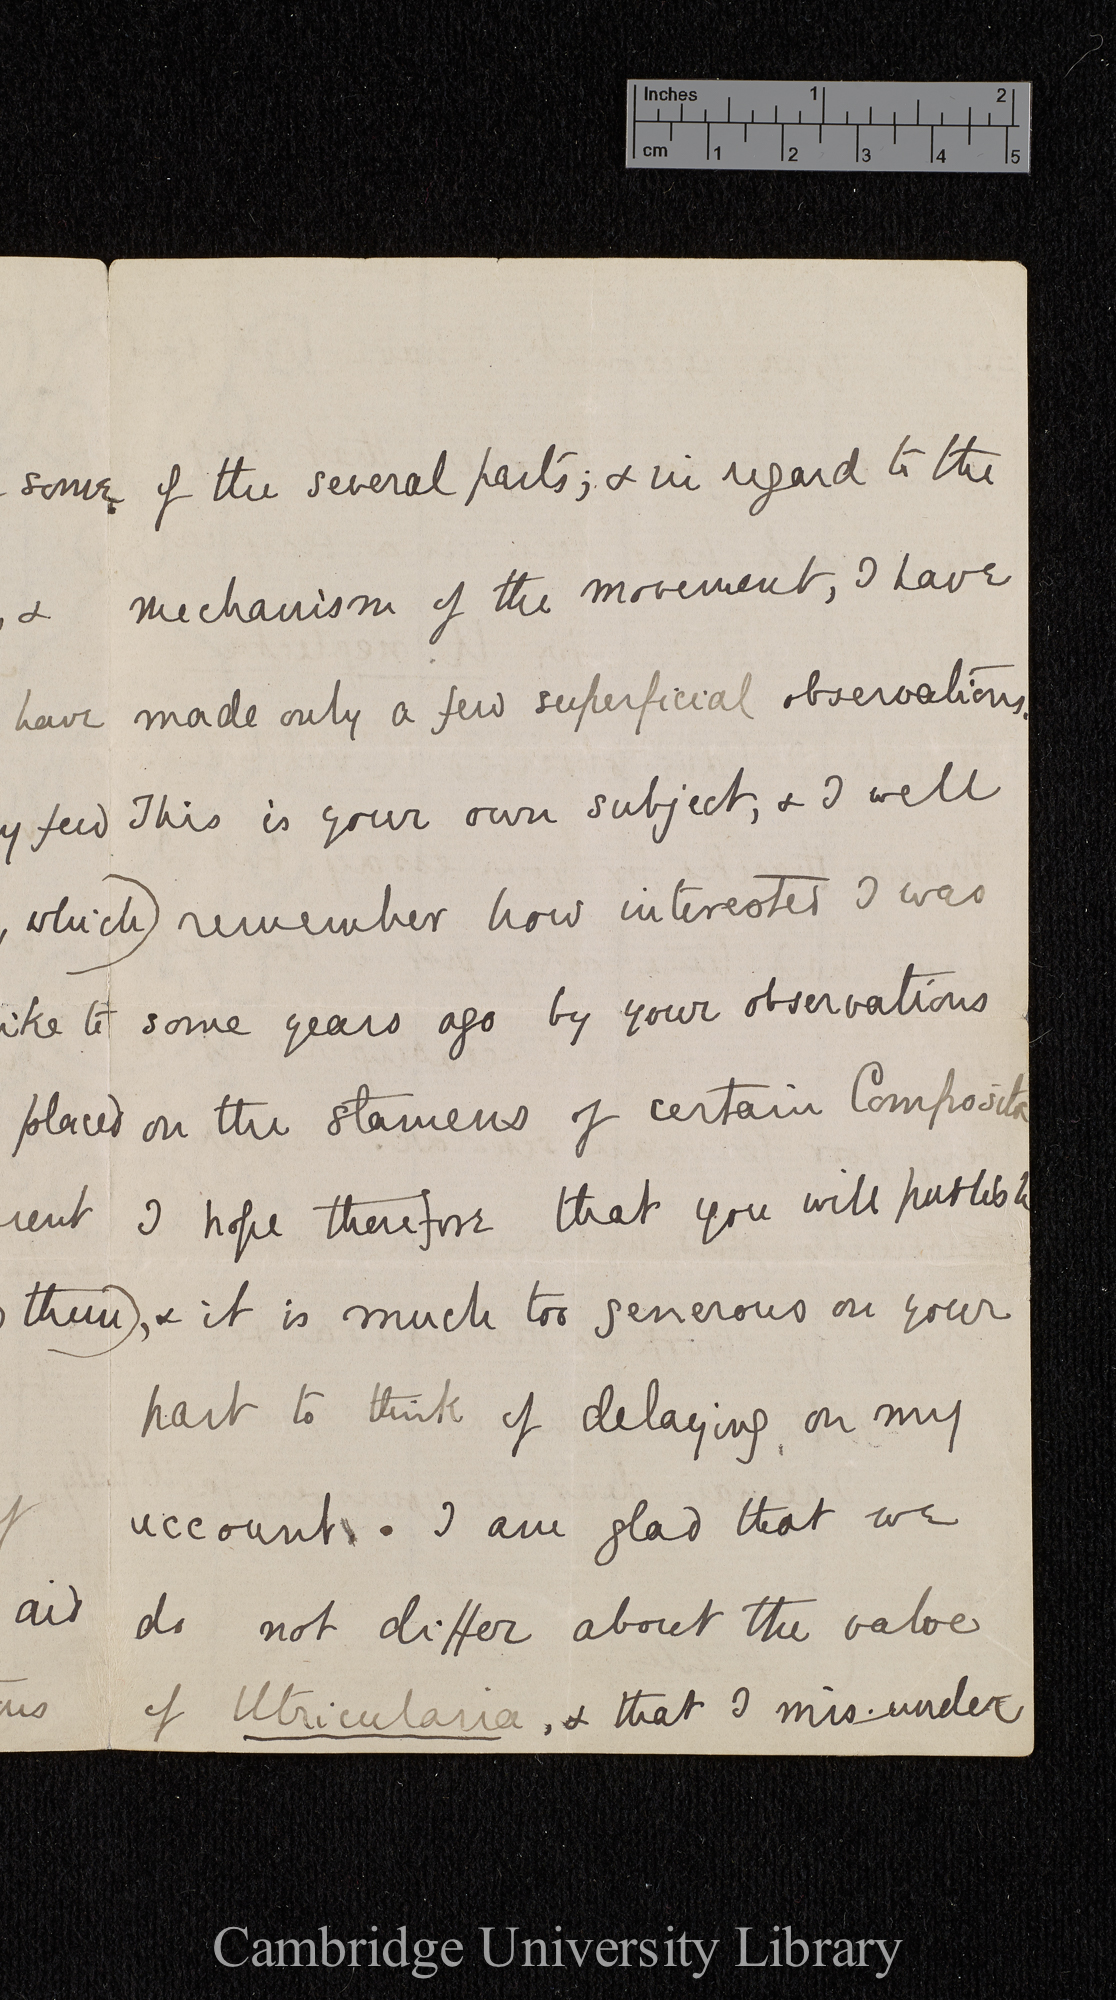 Inches 1 2
cm 1 2 3 4 5
some
, &
have
y few
, which)
ike to
placed
them),
aid
of the several parts; & in regard to the
mechanism of the movement, I have
made only a few superficial observations.
This is your own subject, & I well
remember how interested I was
some years ago by your observations
on the stamens of certain Composita
I hope therefore that you will publish
& it is much too generous on your
part to think of delaying on my
account. I am glad that we
do not differ about the valve
of Utricularia, & that I mis-under
Cambridge University Library